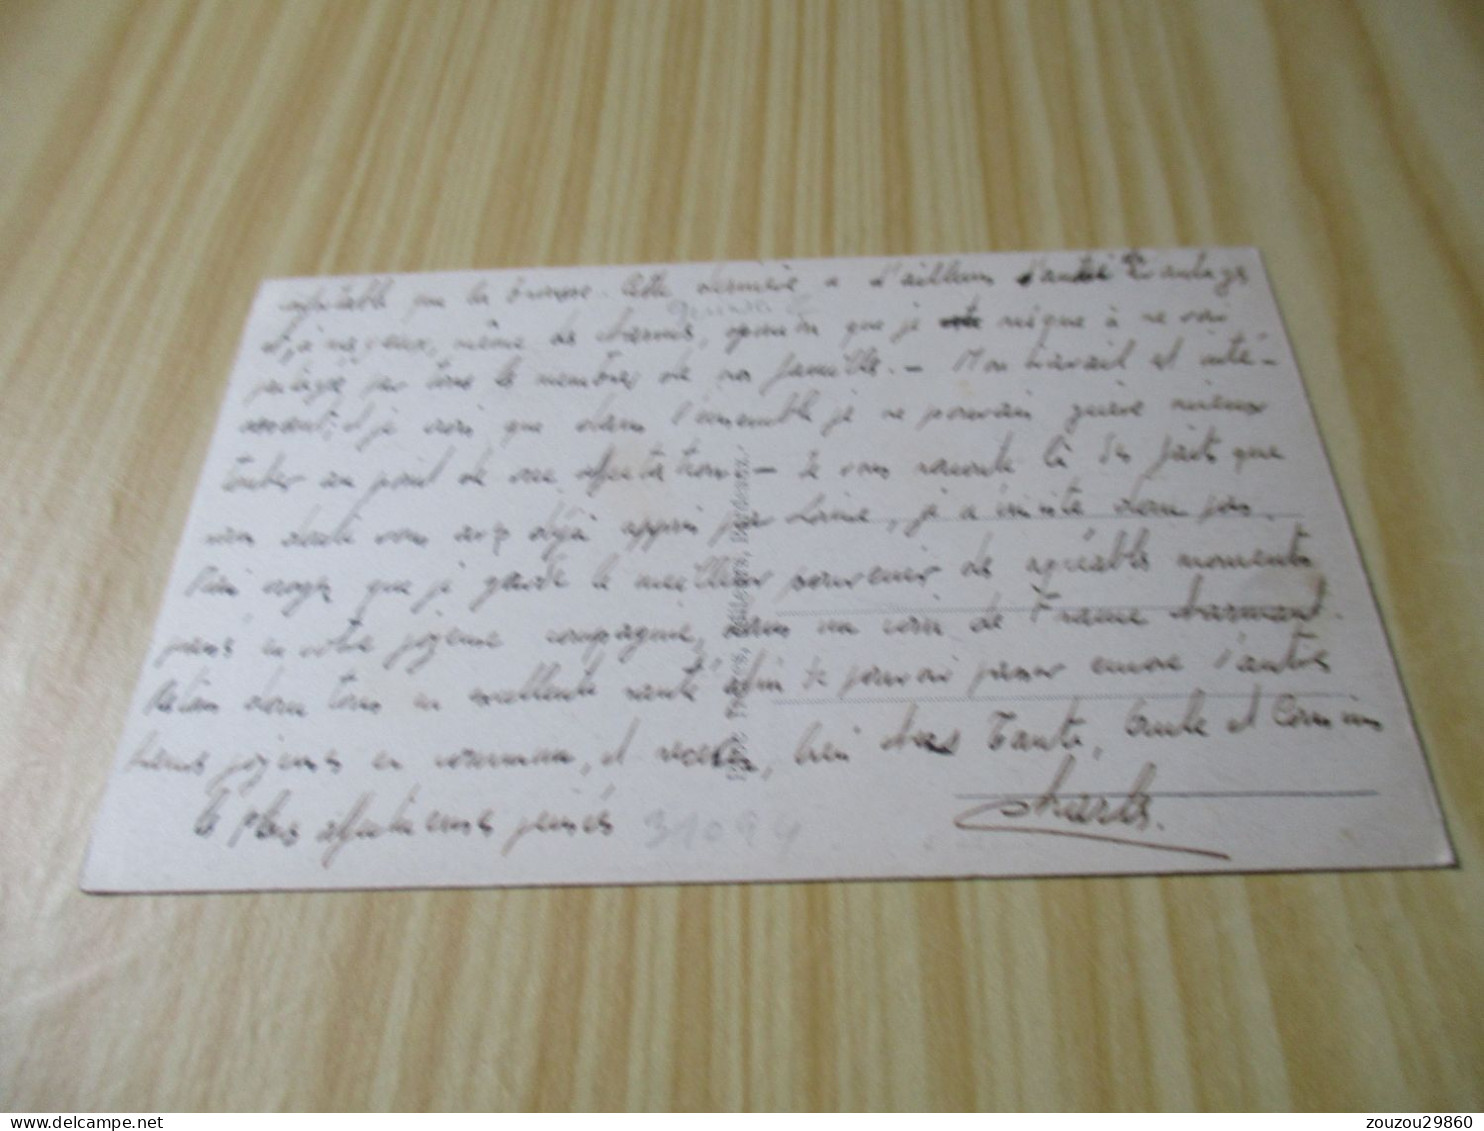 que la brousse. Cette dernière a d'ailleurs d'autres avantages
et, à mes yeux, même de charmes, opinion que je risque à ne voir
partagée par tous les membres de ma famille. - Mon travail est inté-
ressant, et je crois que dans l'ensemble je ne pouvais guère mieux
tomber au point de vue affectation. - Je vous raconte là des faits que
sans doute vous avez déjà appris par Line, je n'insiste donc pas.
Mais croyez que je garde le meilleur souvenir des agréables moments
passés en votre joyeuse compagnie, dans un coin de France charmant.
Restez donc tous en excellente santé afin de pouvoir passer encore d'autres
heures joyeuses en commun, et recevez, bien chers Tante, Oncle et Cousins
les plus affectueuses pensées
Charles.
31094